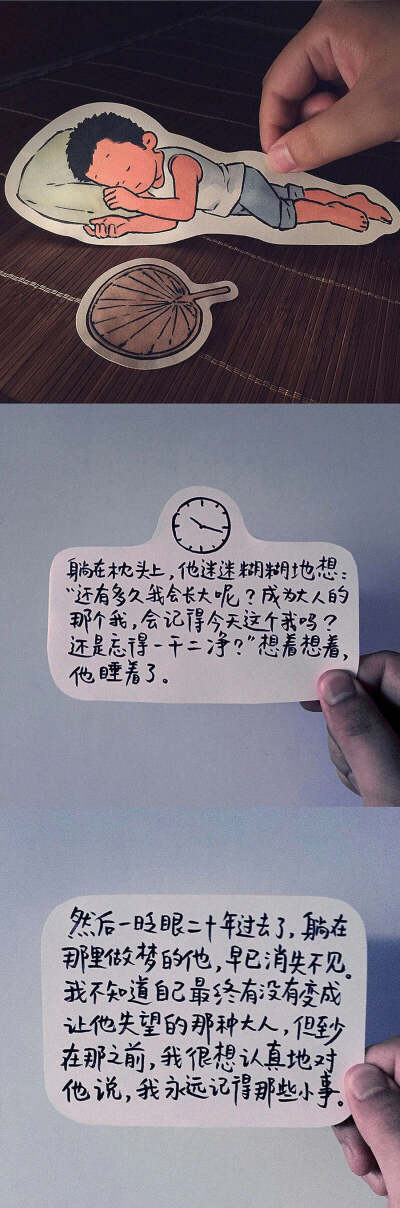 躺在枕头上，他迷迷糊糊地想：
“还有多久我会长大呢？成为大人的
那个我，会记得今天这个我吗？
还是忘得一干二净？”想着想着，
他睡着了。
然后一眨眼二十年过去了，躺在
那里做梦的他，早已消失不见。
我不知道自己最终有没有变成
让他失望的那种大人，但至少
在那之前，我很想认真地对
他说，我永远记得那些小事。